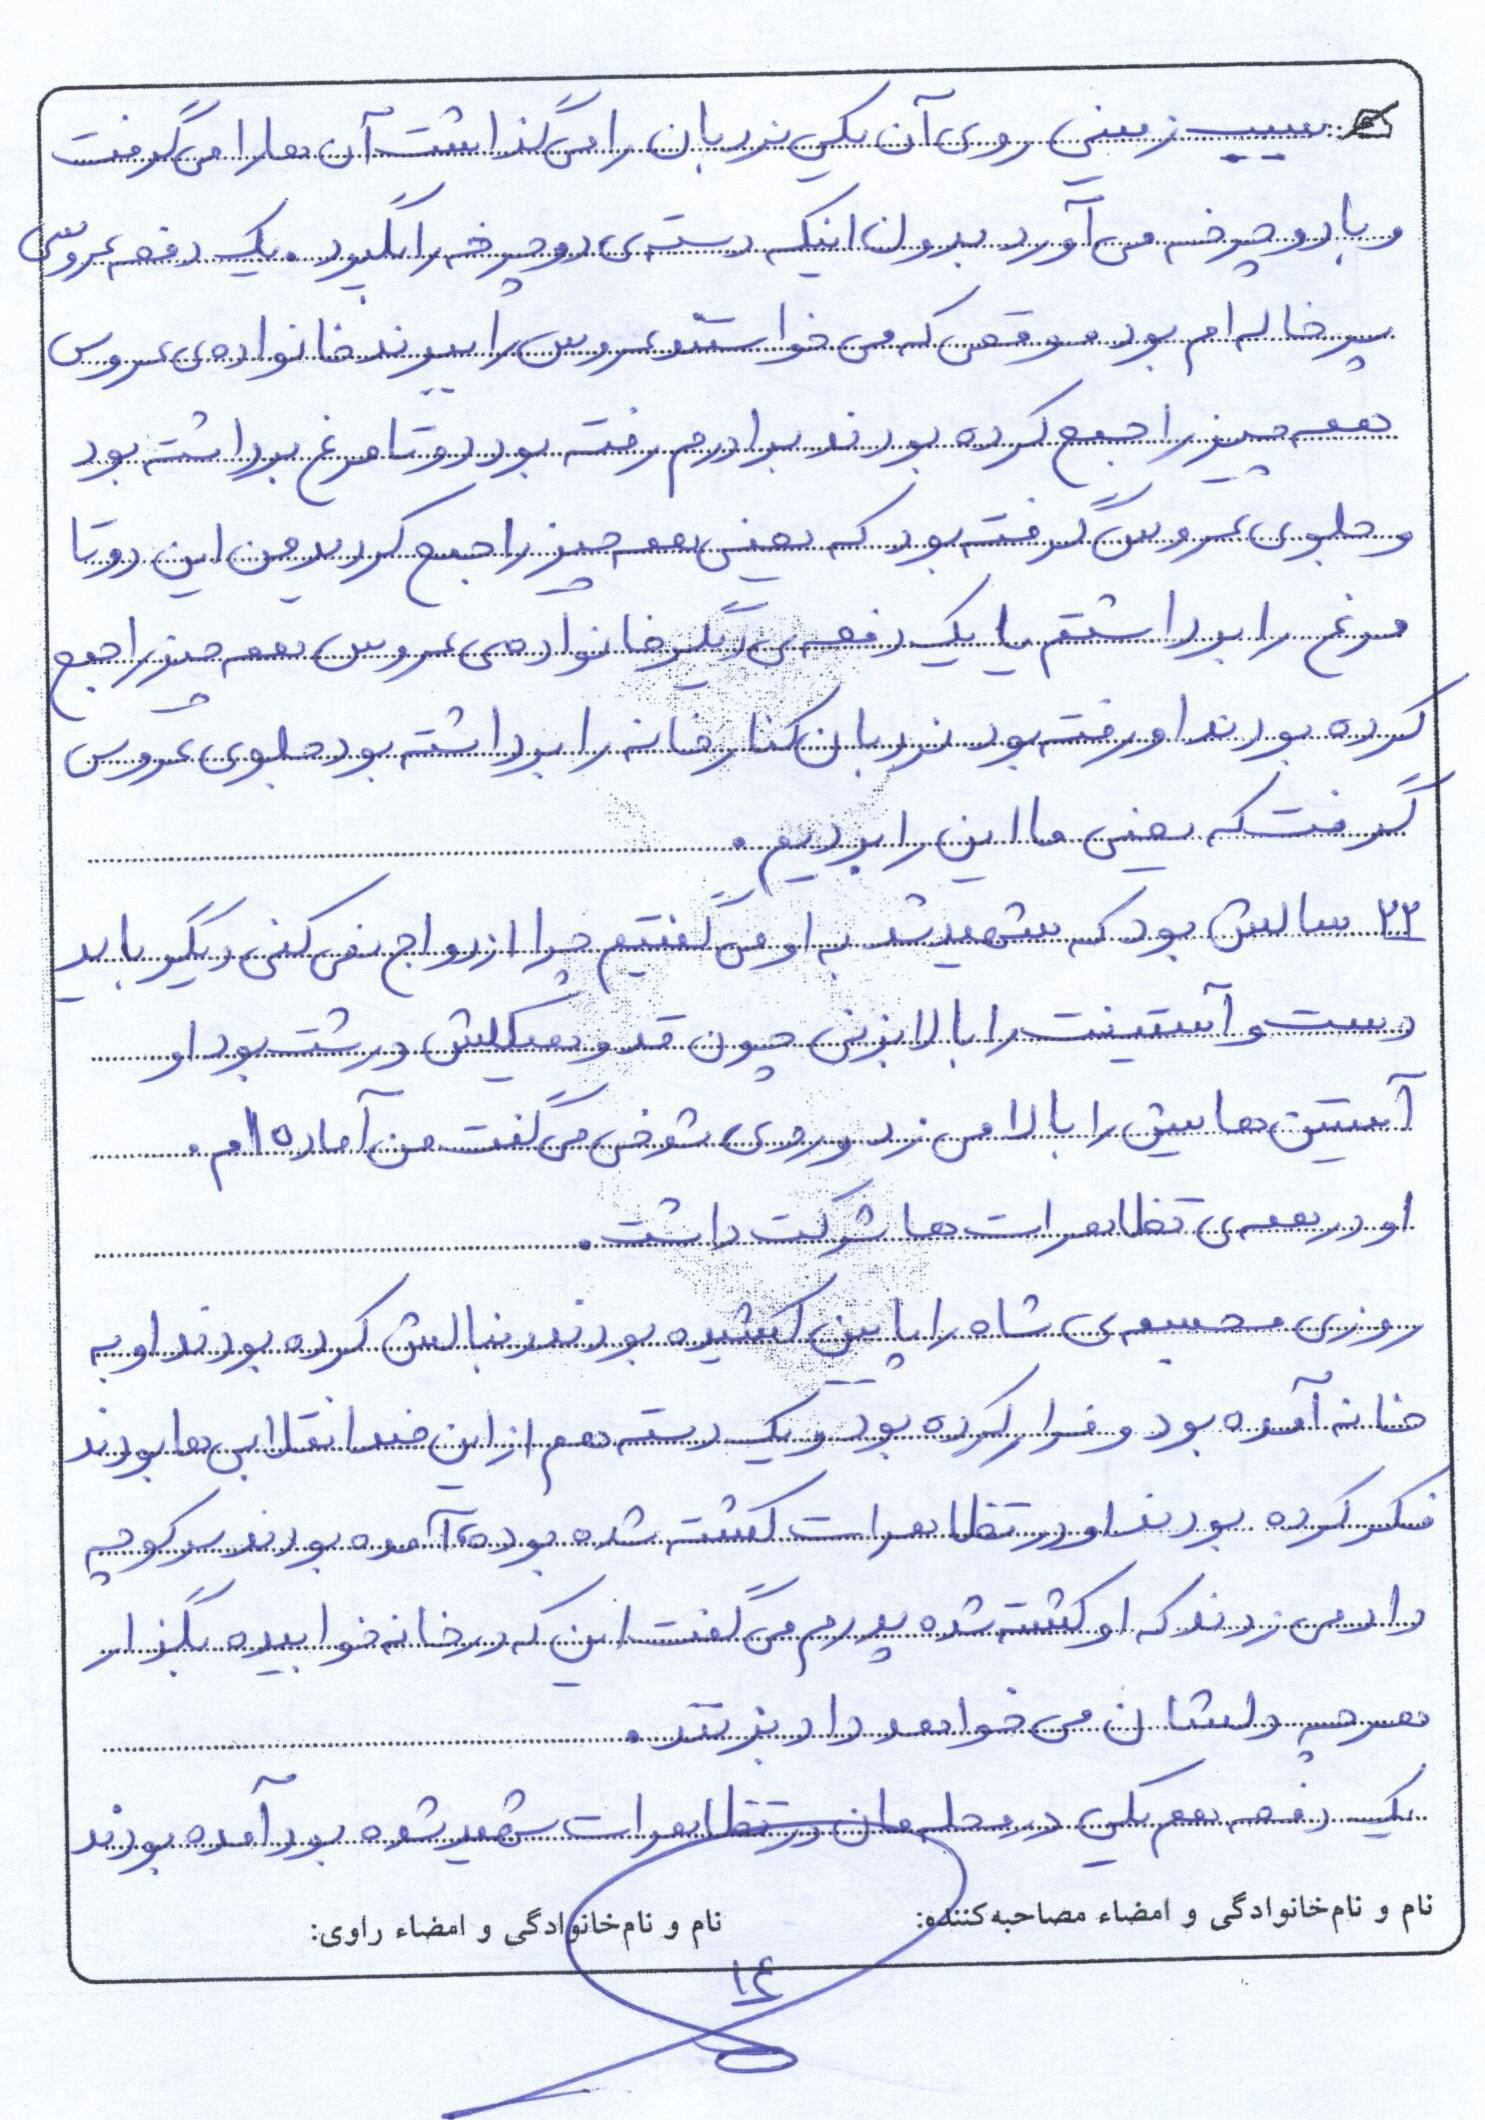 سیب زمینی روی آن یکی نردبان را می گذاشت آن ها را می گرفت
و با دوچرخه می آورد بدون اینکه دسته ی دوچرخه را بگیرد. یک دفعه عروسی
پسر خاله ام بود موقعی که می خواستند عروس را ببرند خانواده ی عروس
همه چیز را جمع کرده بودند برادرم رفته بود دو تا مرغ برداشته بود
و جلوی عروس گرفته بود که یعنی همه چیز را جمع کردید من این دو تا
مرغ را برداشتم یا یک دفعه ی دیگر خانواده ی عروس همه چیز را جمع
کرده بودند او رفته بود نردبان کنار خانه را برداشته بود جلوی عروس
گرفت که یعنی ما این را بردیم.
۲۲ سالش بود که شهید شد به او می گفتیم چرا ازدواج نمی کنی دیگر باید
دست و آستینت را بالا بزنی چون قد و هیکلش درشت بود او
آستین هایش را بالا می زد و روی شوخی می گفت من آماده ام.
او در همه ی تظاهرات ها شرکت داشت.
روزی مجسمه ی شاه را پایین کشیده بودند دنبالش کرده بودند او به
خانه آمده بود و فرار کرده بود و یک دسته هم از این ضد انقلابی ها بودند
فکر کرده بودند او در تظاهرات کشته شده بوده آمده بودند سر کوچه
داد می زدند که او کشته شده پدرم می گفت این که در خانه خوابیده بگذار
هر چه دلشان می خواهد داد بزنند.
یک دفعه هم یکی در محله مان در تظاهرات شهید شده بود آمده بودند
نام و نام‌خانوادگی و امضاء مصاحبه‌کننده: نام و نام‌خانوادگی و امضاء راوی:
۱۶